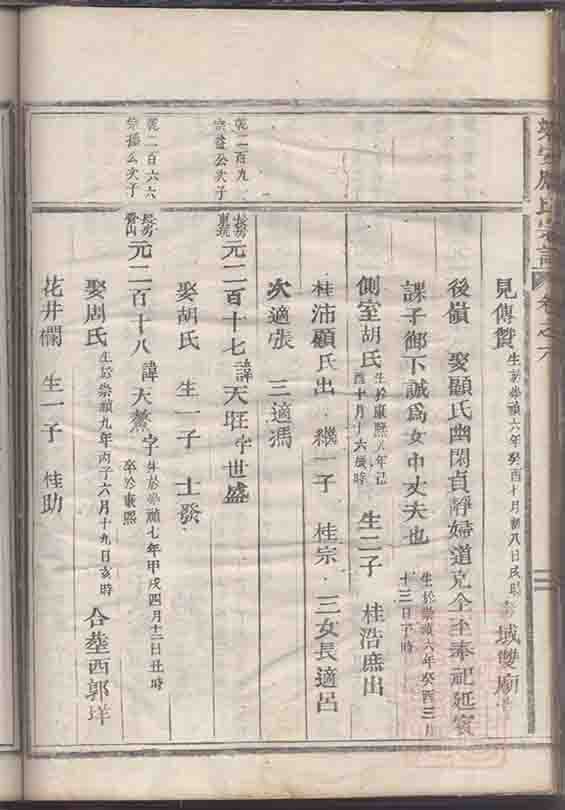 氏宗譜 卷之六
見傳贊 生於崇禎六年癸酉十月初八日戌時 城雙廟
後嶺 娶顧氏幽閑貞靜婦道克全至奉祀延賓
課子御下誠爲女中丈夫也 生於崇禎六年癸酉三月十三日子時
側室胡氏 生於康熙八年己酉十月十六歲時 生二子 桂浩庶出
桂沛顧氏出 繼一子 桂宗 三女長適呂
次適張 三適馮
乾二百九 次子
長房 元二百十七 諱天旺字世盛
娶胡氏 生一子 士發
乾二百六六 公次子
長房 山 元二百十八 諱天 字 生於崇禎七年甲戌四月十二日丑時 卒於康熙
娶周氏 生於崇禎九年丙子六月十九日亥時 合塟西郭垟
花井欄 生一子 桂助